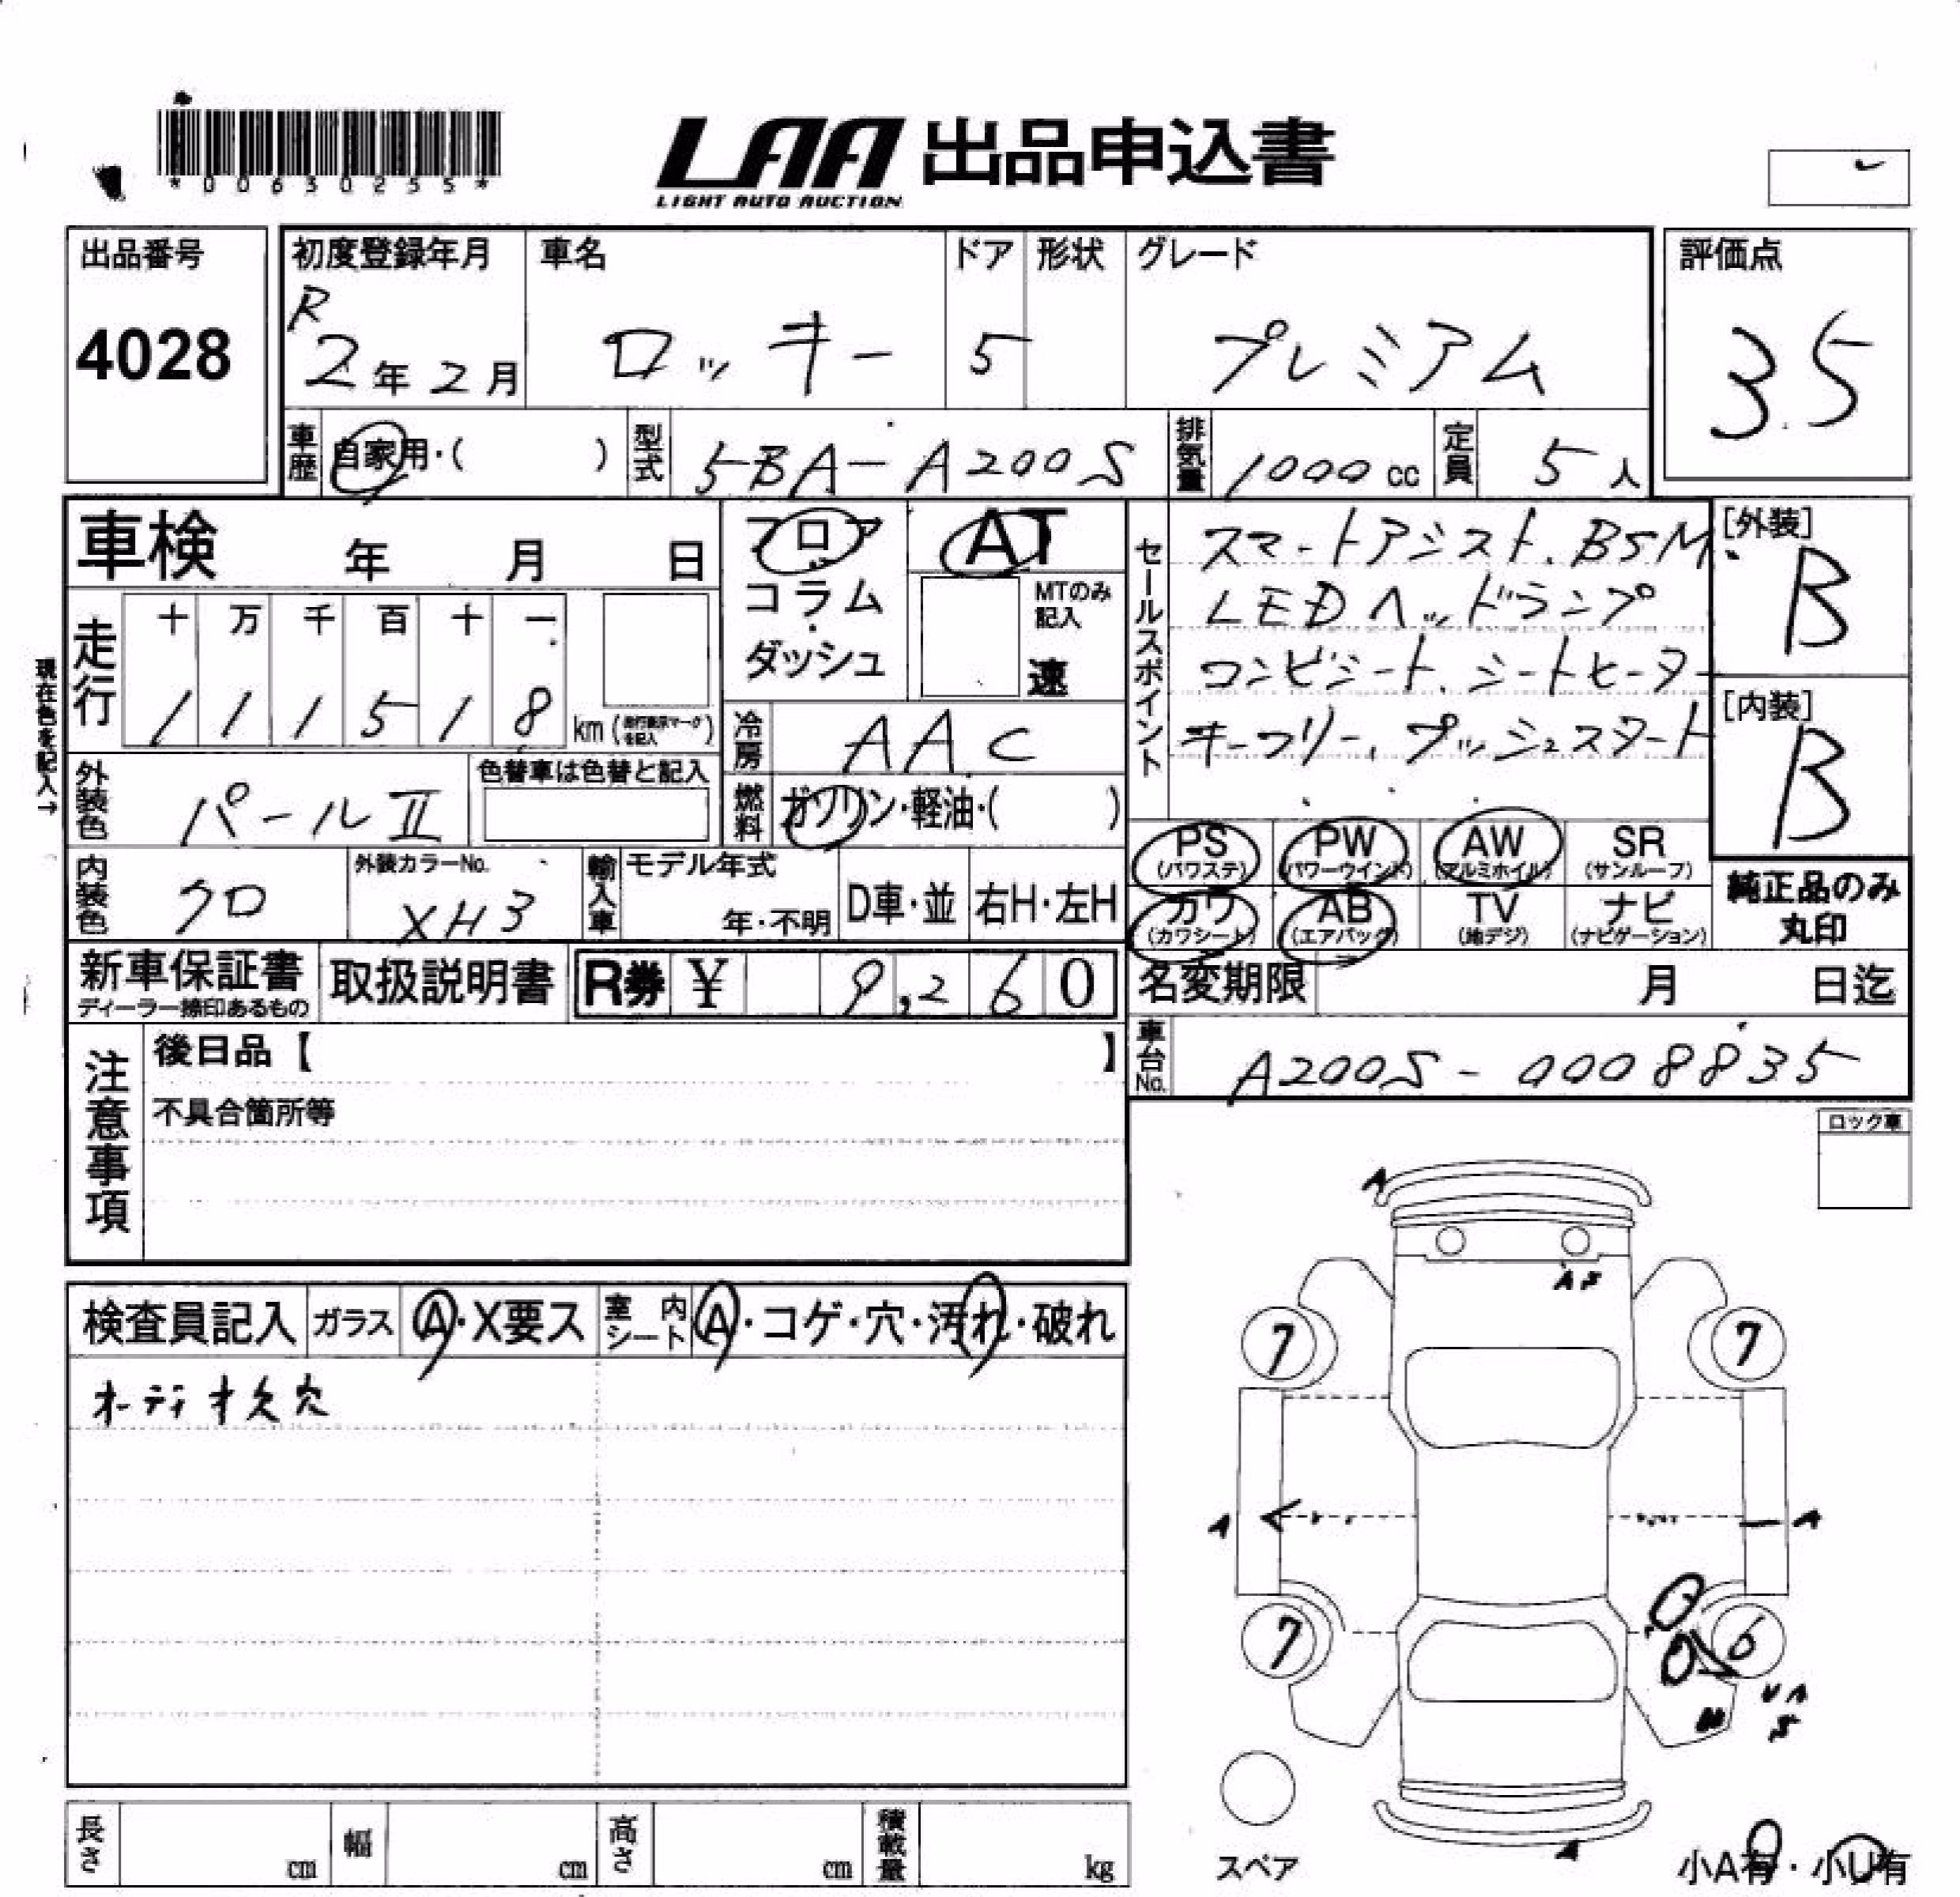 *00630255*
LAA 出品申込書
LIGHT AUTO AUCTION
出品番号
4028
初度登録年月
R
2年2月
車名
ロッキー
ドア
5
形状
グレード
プレミアム
評価点
3.5
車歴 自家用・( )
型式 5BA-A200S
排気量 1000cc
定員 5人
車検 年 月 日
フロア
コラム
ダッシュ
AT
MTのみ
記入
速
現在色を記入→
走行
十 万 千 百 十 一
1 1 1 5 1 8 km
冷房 AAC
燃料 ガソリン・軽油・( )
外装色 パールⅡ
色替車は色替と記入
内装色 クロ
外装カラーNo.
XH3
輸入車 モデル年式
年・不明 D車・並 右H・左H
セールスポイント
スマートアシスト、BSM、
LEDヘッドランプ
コンビシート、シートヒーター
キーフリー、プッシュスタート
[外装]
B
[内装]
B
PS PW AW SR
(パワステ) (パワーウインド) (アルミホイル) (サンルーフ)
カワ AB TV ナビ
(カワシート) (エアバック) (地デジ) (ナビゲーション)
純正品のみ
丸印
新車保証書
ディーラー捺印あるもの
取扱説明書
R券 ¥ 9,260
名変期限 月 日迄
車台No. A200S-0008835
注意事項
後日品【 】
不具合箇所等
ロック車
検査員記入 ガラス A・X要ス 室内シート A・コゲ・穴・汚れ・破れ
オーディオ欠穴
A
7 7
A A
7 6
A
スペア
小A有・小U有
長さ cm 幅 cm 高さ cm 積載量 kg